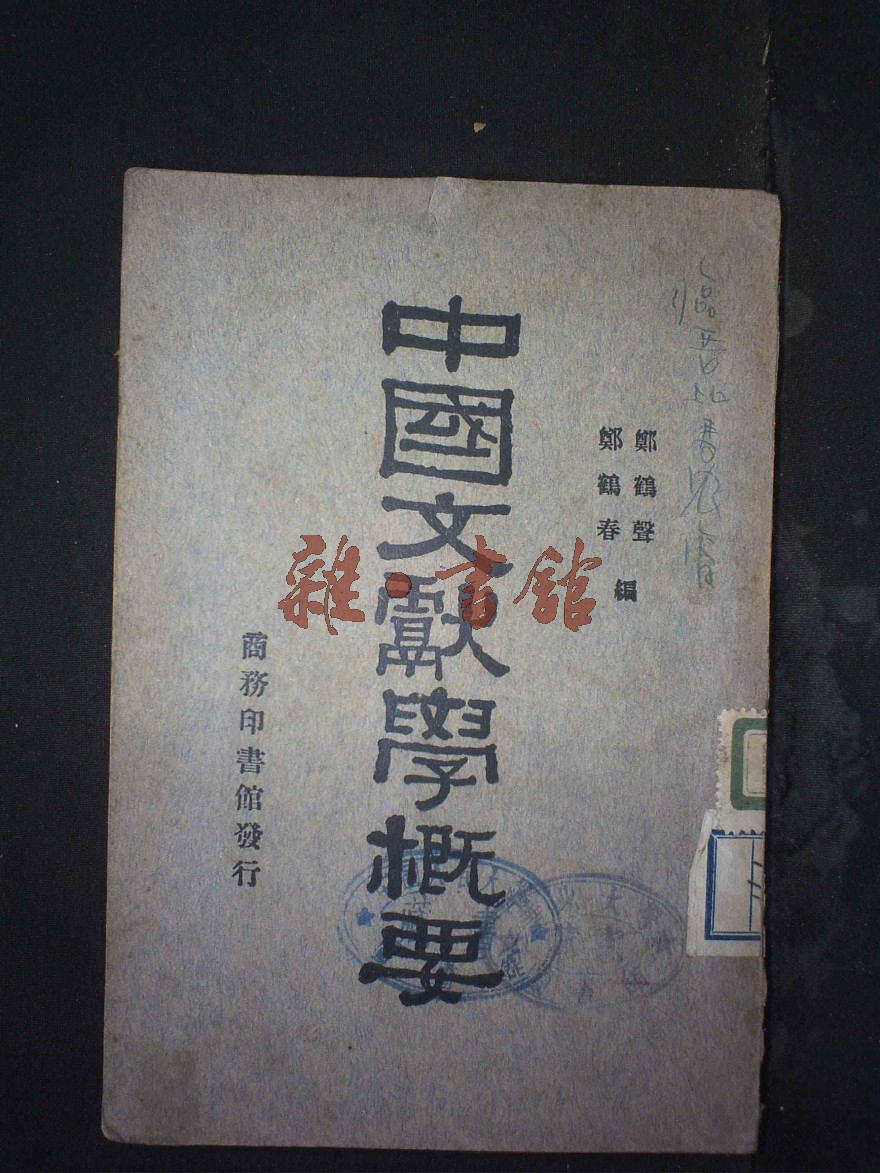 鄭鶴聲
鄭鶴春
編
中國文獻學概要
商務印書館發行
雜·書館